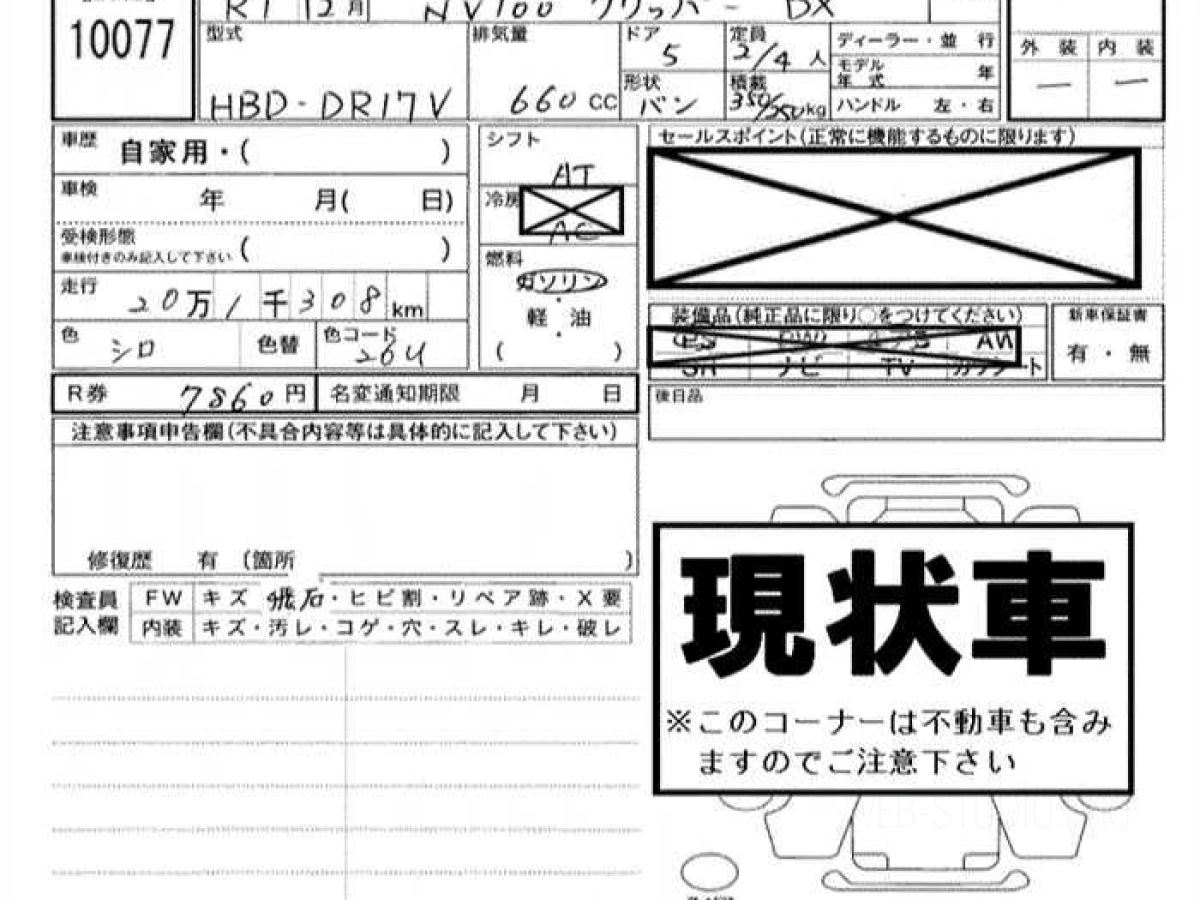 10077
R1 12月 NV100 クリッパー DX
型式 HBD-DR17V
排気量 660 CC
ドア 5
定員 2/4 人
形状 バン
積載 350/250kg
ディーラー・並 行
モデル年式 年
ハンドル 左・右
外 装 内 装
— —
車歴 自家用・( )
車検 年 月( 日)
受検形態
車検付きのみ記入して下さい ( )
走行 20万1千308km
色 シロ 色替 色コード 26U
シフト AT
冷房 AC
燃料
ガソリン
・
軽・油
( )
セールスポイント(正常に機能するものに限ります)
装備品(純正品に限り○をつけてください)
PS PW エアB AW
SR ナビ TV カワシート
新車保証書
有・無
R券 7860円 名変通知期限 月 日
後日品
注意事項申告欄(不具合内容等は具体的に記入して下さい)
修復歴 有 (箇所 )
検査員記入欄
FW キズ 飛石・ヒビ割・リペア跡・X要
内装 キズ・汚レ・コゲ・穴・スレ・キレ・破レ
現状車
※このコーナーは不動車も含み
ますのでご注意下さい